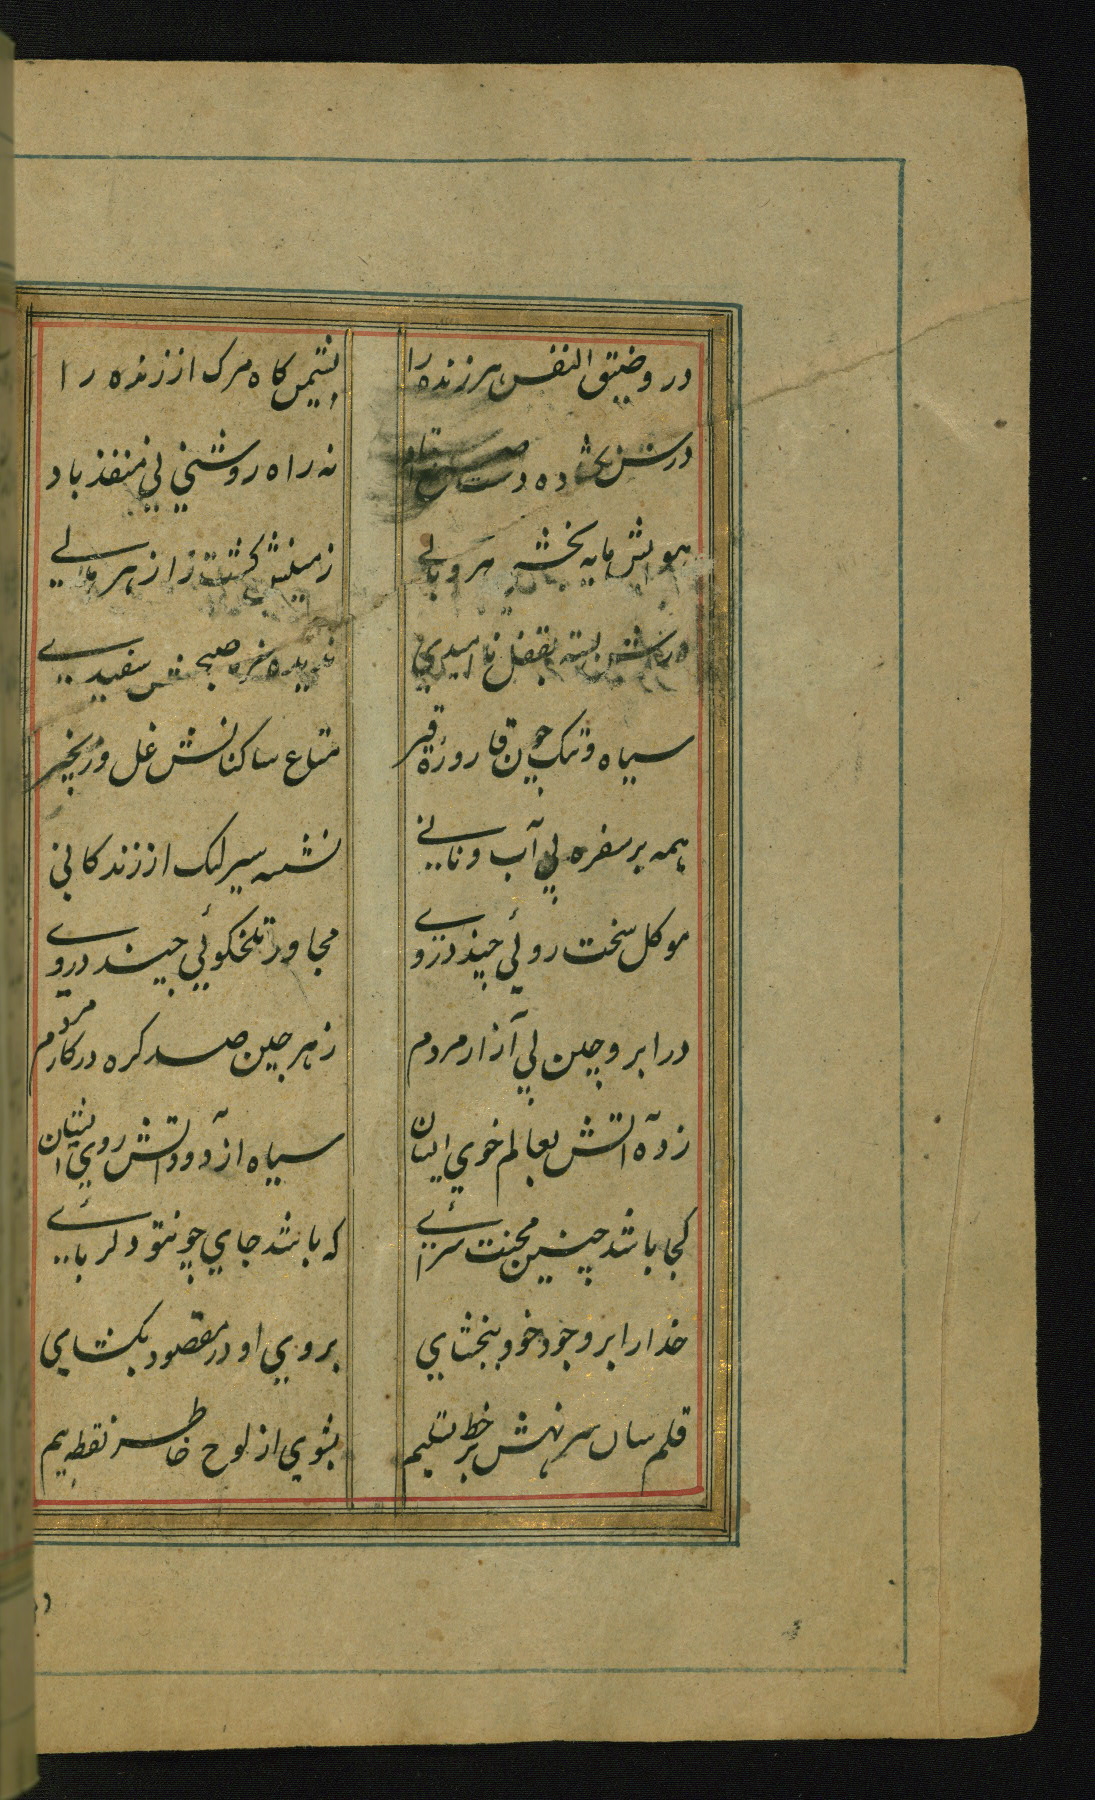 در و ضیق النفس هر زنده را نشیمن کاه مرک ازنده را
درش نکشاده دست صنع استاد نه راه روشنی نی منفذ باد
هوایش مایه بخش هر وبالی زمینش کشت زار هر ملالی
درش بسته بقفل نا امیدی ندیده خبره صبحش سفیدی
سیاه و تنک چون قاروره قیر متاع ساکنانش غل و زنجیر
همه بر سفره بی آب و نانی نشسته سیر لیک از زندکانی
موکل سخت روئی چند در وی مجاور تلخکوئی چند در وی
در ابرو چین پی آزار مردم ز هر چین صد کره در کار مردم
زده آتش بعالم خوی ایشان سیاه از دود آتش روی ایشان
کجا باشد چنین محنت سرائی که باشد جای چونتو دلربائی
خدا را بر وجود خود ببخشای بروی او در مقصود بکشای
قلم سان سر نهش بر خط تسلیم بشوی از لوح خاطر نقطه بیم